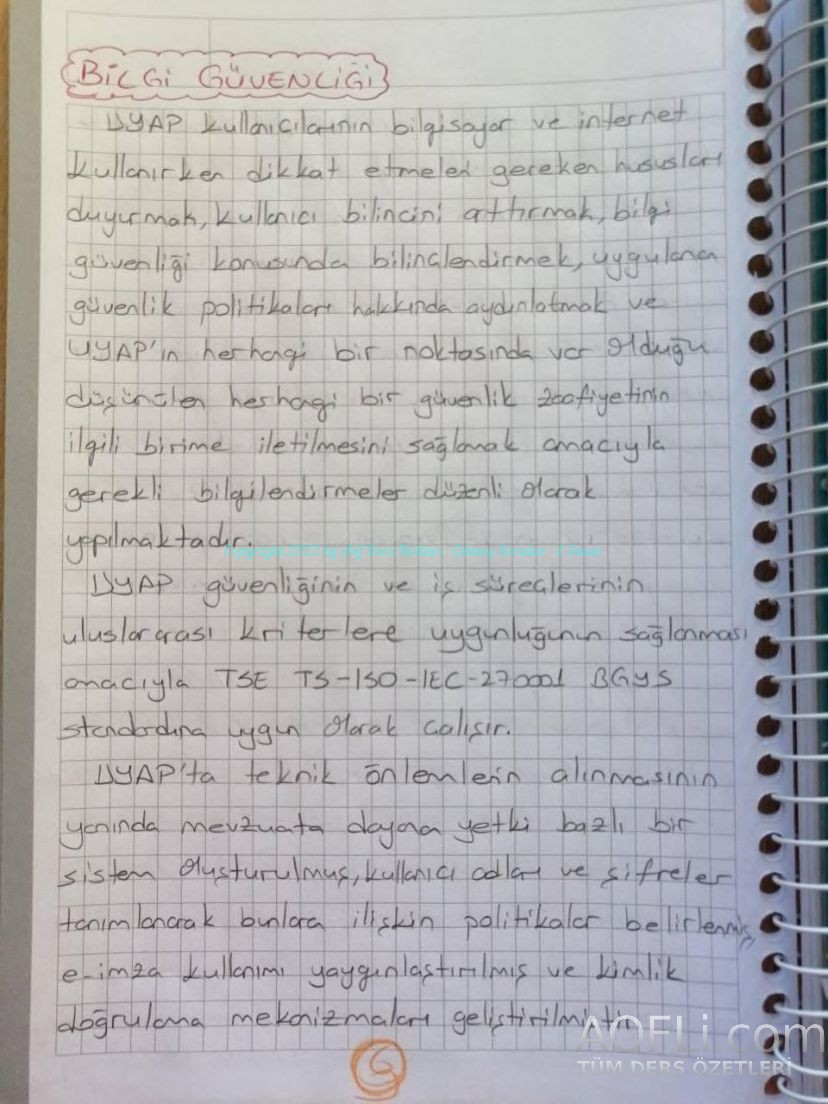 BİLGİ GÜVENLİĞİ
UYAP kullanıcılarının bilgisayar ve internet
kullanırken dikkat etmeleri gereken hususları
duyurmak, kullanıcı bilincini arttırmak, bilgi
güvenliği konusunda bilinçlendirmek, uygulanan
güvenlik politikaları hakkında aydınlatmak ve
UYAP'ın herhangi bir noktasında var olduğu
düşünülen herhangi bir güvenlik zaafiyetinin
ilgili birime iletilmesini sağlamak amacıyla
gerekli bilgilendirmeler düzenli olarak
yapılmaktadır.
UYAP güvenliğinin ve iş süreçlerinin
uluslararası kriterlere uygunluğunun sağlanması
amacıyla TSE TS-ISO-IEC-270001 BGYS
standardına uygun olarak çalışır.
UYAP'ta teknik önlemlerin alınmasının
yanında mevzuata dayanan yetki bazlı bir
sistem oluşturulmuş, kullanıcı adları ve şifreler
tanımlanarak bunlara ilişkin politikalar belirlenmiş,
e-imza kullanımı yaygınlaştırılmış ve kimlik
doğrulama mekanizmaları geliştirilmiştir.
AOFLi.com
TÜM DERS ÖZETLERİ